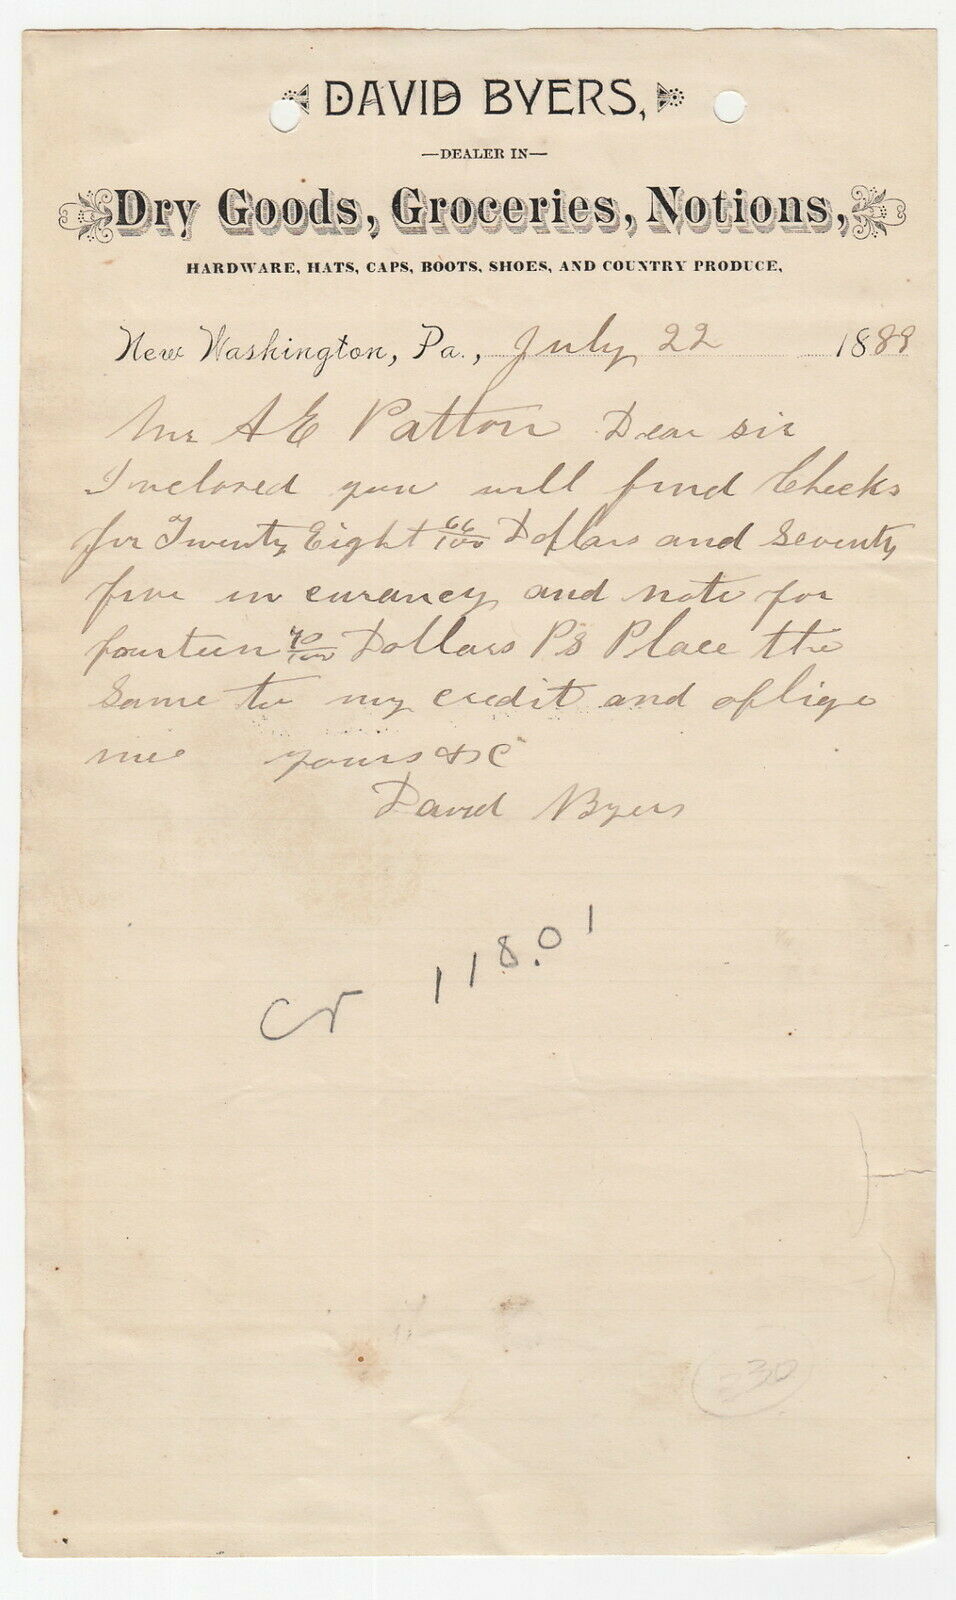 DAVID BYERS,
—DEALER IN—
Dry Goods, Groceries, Notions,
HARDWARE, HATS, CAPS, BOOTS, SHOES, AND COUNTRY PRODUCE,
New Washington, Pa., July 22 1889
Mr A E Patton Dear sir
Inclosed you will find Checks
for Twenty Eight 66/100 Dollars and Seventy
five in curancy and note for
fourteen 40/100 Dollars PS Place the
Same to my credit and oblige
me yours &C
David Byers
Cr 118.01
30